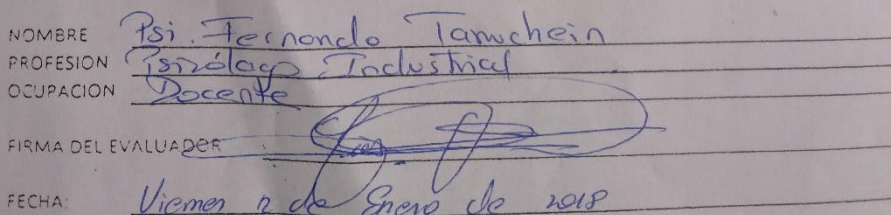 NOMBRE Psi. Fernando
PROFESION Psicólogo Industrial
OCUPACION Docente
FIRMA DEL EVALUADOR
FECHA: Viernes de Enero de 2018